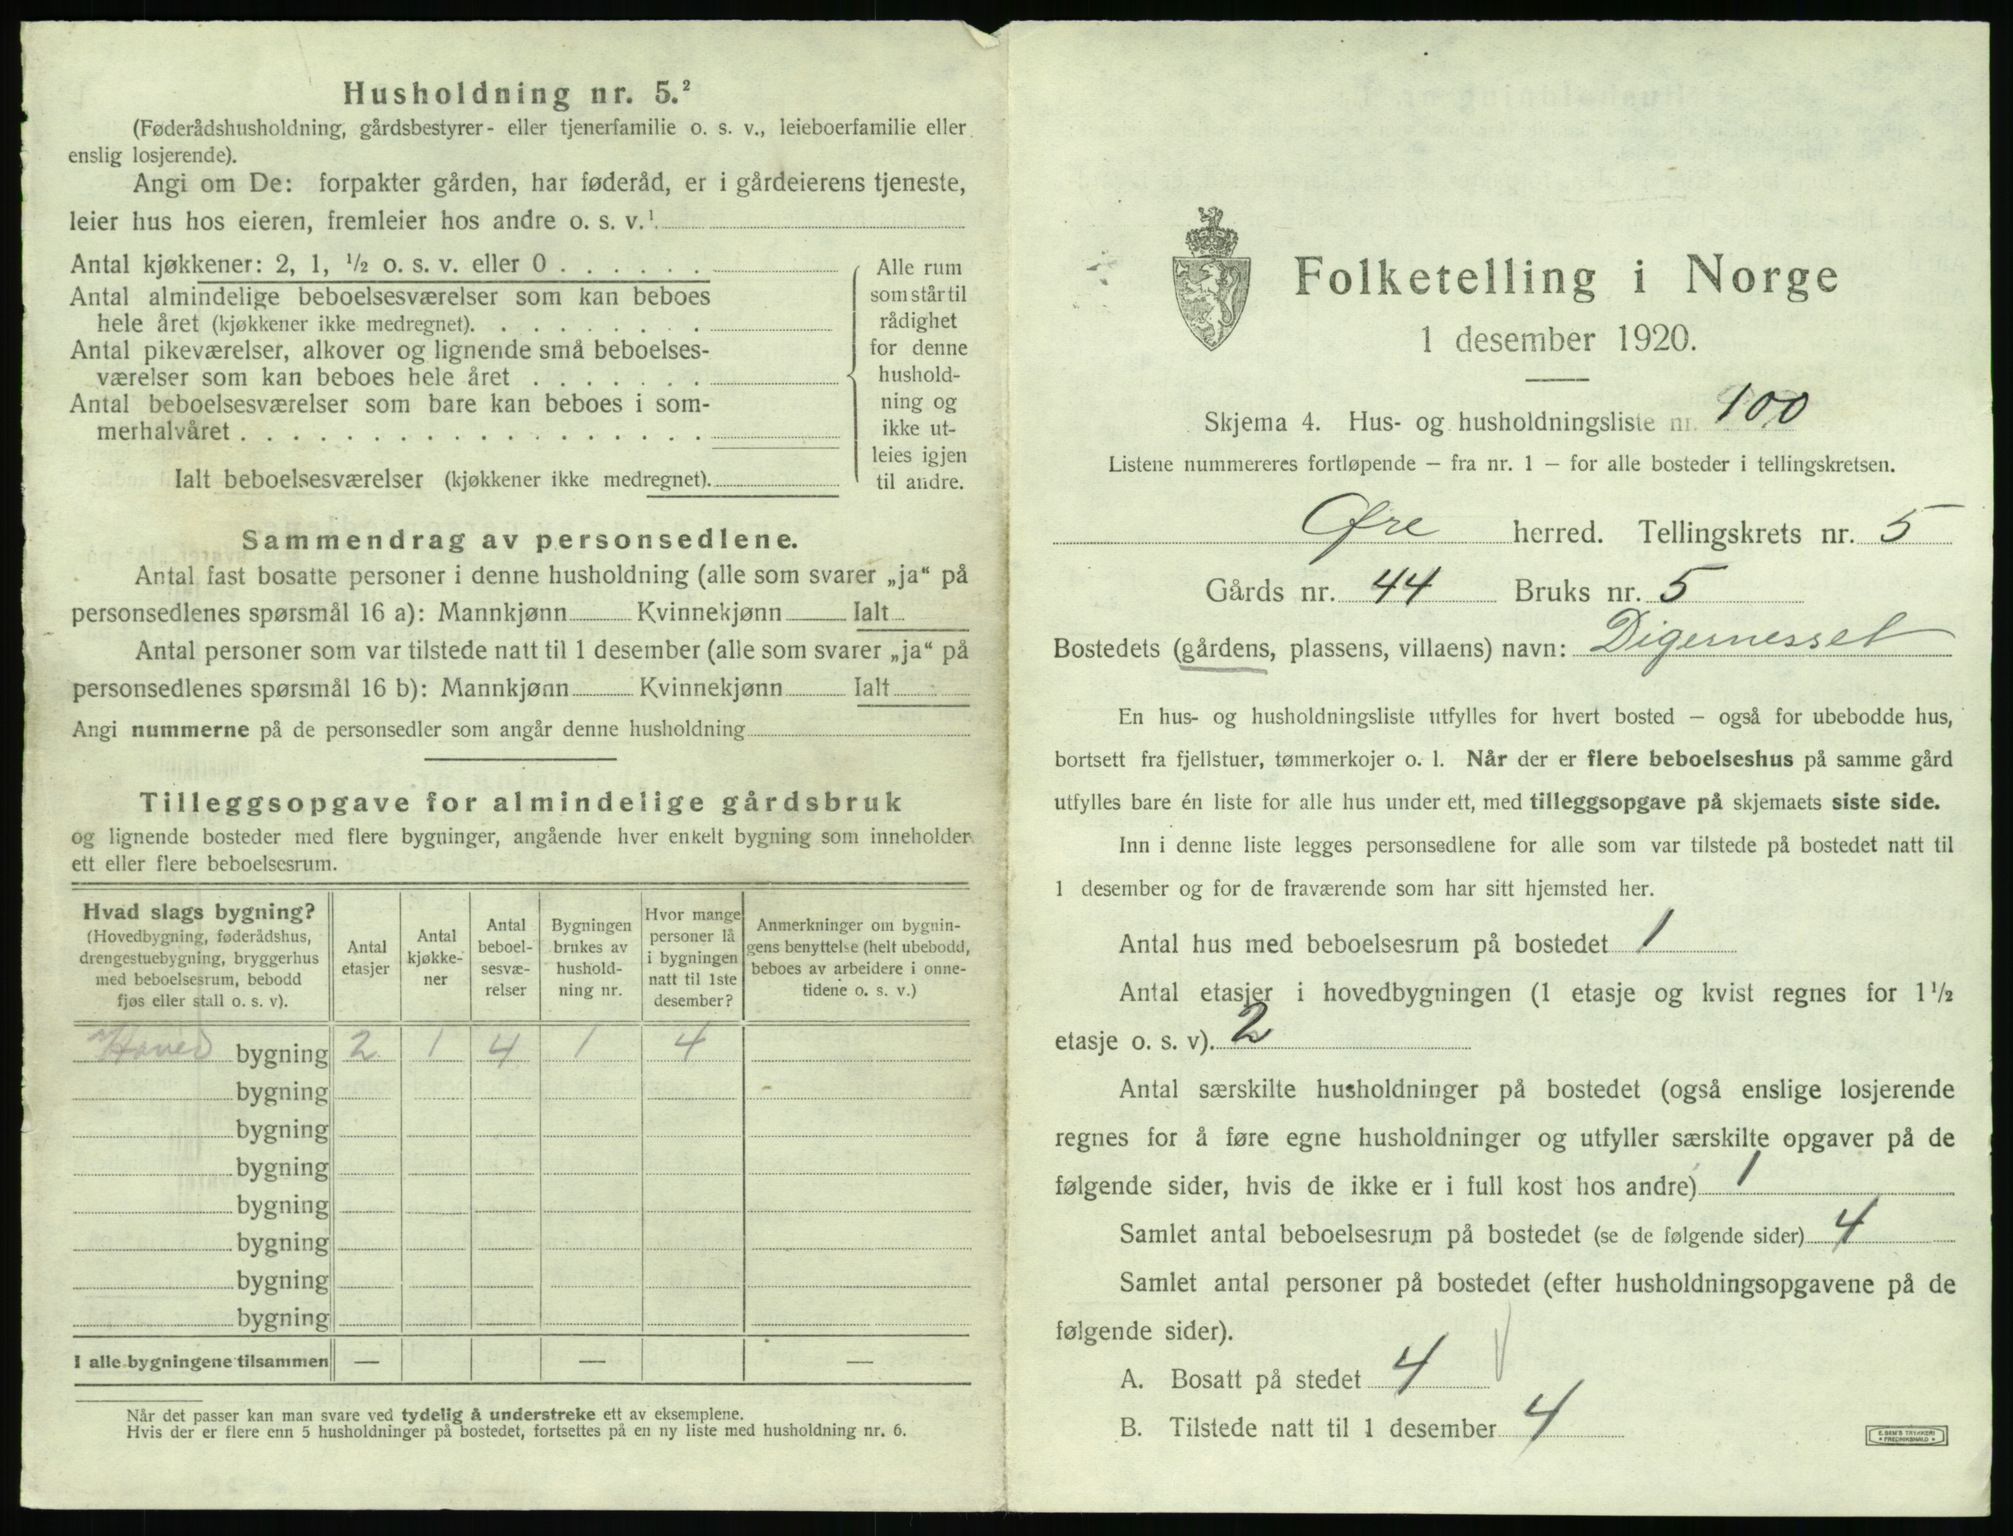 Husholdning nr. 5.²
(Føderådshusholdning, gårdsbestyrer- eller tjenerfamilie o. s. v., leieboerfamilie eller
enslig losjerende).
Angi om De: forpakter gården, har føderåd, er i gårdeierens tjeneste,
leier hus hos eieren, fremleier hos andre o. s. v.¹
Antal kjøkkener: 2, 1, ½ o. s. v. eller 0
Antal almindelige beboelsesværelser som kan beboes
hele året (kjøkkener ikke medregnet).
Antal pikeværelser, alkover og lignende små beboelses-
værelser som kan beboes hele året
Antal beboelsesværelser som bare kan beboes i som-
merhalvåret
Ialt beboelsesværelser (kjøkkener ikke medregnet).
Alle rum
som står til
rådighet
for denne
hushold-
ning og
ikke ut-
leies igjen
til andre.
Sammendrag av personsedlene.
Antal fast bosatte personer i denne husholdning (alle som svarer „ja“ på
personsedlenes spørsmål 16 a): Mannkjønn Kvinnekjønn Ialt
Antal personer som var tilstede natt til 1 desember (alle som svarer „ja“ på
personsedlenes spørsmål 16 b): Mannkjønn Kvinnekjønn Ialt
Angi nummerne på de personsedler som angår denne husholdning
Tilleggsopgave for almindelige gårdsbruk
og lignende bosteder med flere bygninger, angående hver enkelt bygning som inneholder
ett eller flere beboelsesrum.
Hvad slags bygning?
(Hovedbygning, føderådshus,
drengestuebygning, bryggerhus
med beboelsesrum, bebodd
fjøs eller stall o. s. v).
Antal
etasjer
Antal
kjøkke-
ner
Antal
beboel-
sesvæ-
relser
Bygningen
brukes av
hushold-
ning nr.
Hvor mange
personer lå
i bygningen
natt til 1ste
desember?
Anmerkninger om bygnin-
gens benyttelse (helt ubebodd,
beboes av arbeidere i onne-
tidene o. s. v.)
Hoved bygning 2 1 4 1 4
bygning
bygning
bygning
bygning
bygning
bygning
bygning
I alle bygningene tilsammen — — —
Når det passer kan man svare ved tydelig å understreke ett av eksemplene.
Hvis der er flere enn 5 husholdninger på bostedet, fortsettes på en ny liste med husholdning nr. 6.
Folketelling i Norge
1 desember 1920.
Skjema 4. Hus- og husholdningsliste nr. 100
Listene nummereres fortløpende – fra nr. 1 – for alle bosteder i tellingskretsen.
Øre herred. Tellingskrets nr. 5
Gårds nr. 44 Bruks nr. 5
Bostedets (gårdens, plassens, villaens) navn: Digernesset
En hus- og husholdningsliste utfylles for hvert bosted – også for ubebodde hus,
bortsett fra fjellstuer, tømmerkojer o. l. Når der er flere beboelseshus på samme gård
utfylles bare én liste for alle hus under ett, med tilleggsopgave på skjemaets siste side.
Inn i denne liste legges personsedlene for alle som var tilstede på bostedet natt til
1 desember og for de fraværende som har sitt hjemsted her.
Antal hus med beboelsesrum på bostedet 1
Antal etasjer i hovedbygningen (1 etasje og kvist regnes for 1½
etasje o. s. v). 2
Antal særskilte husholdninger på bostedet (også enslige losjerende
regnes for å føre egne husholdninger og utfyller særskilte opgaver på de
følgende sider, hvis de ikke er i full kost hos andre) 1
Samlet antal beboelsesrum på bostedet (se de følgende sider) 4
Samlet antal personer på bostedet (efter husholdningsopgavene på de
følgende sider).
A. Bosatt på stedet 4
B. Tilstede natt til 1 desember 4
E. SEM'S TRYKKERI
• FREDRIKSHALD •